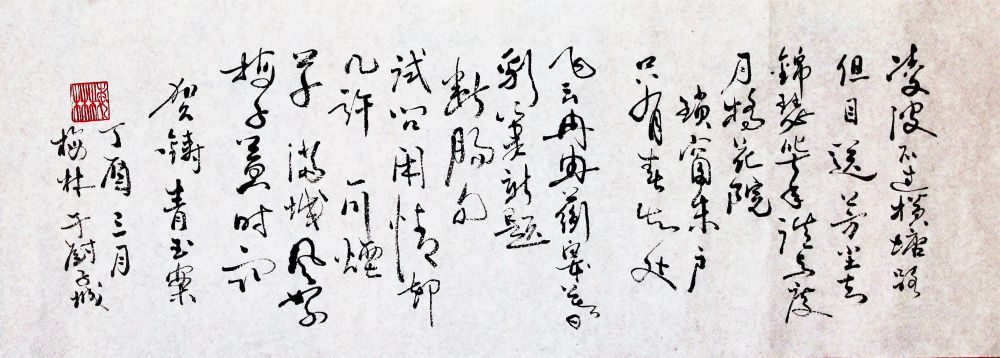 凌波不过横塘路
但目送芳尘去
錦瑟华年谁与度
月橋花院
瑣窗朱户
只有春知处
飞云冉冉蘅皋暮
彩笔新題
断肠句
試问闲情都
几许一川煙
草满城风絮
梅子黄时雨
贺鑄青玉案
丁酉三月
梅林于城